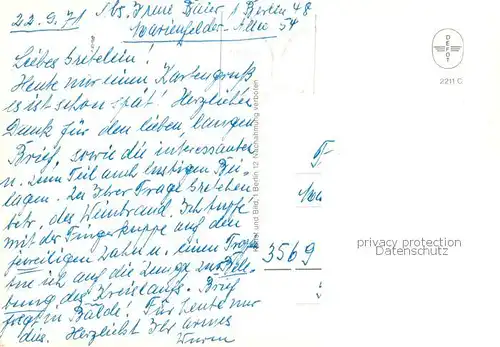 22.9.71 Abs. Irene Baier, 1 Berlin 48
Marienfelder-Allee 54
Liebes Gretelein!
Heute nur einen Kartengruß
es ist schon spät! Herzlichen
Dank für den lieben langen
Brief, sowie die interessanten
u. zum Teil auch lustigen Bei-
lagen. Zu Ihrer Frage Gretchen
betr. des Weinbrand. Ich tupfe
mit der Fingerkuppe auf den
jeweiligen Zahn u. einen Tropfen
tue ich auf die Zunge zur Bele-
bung des Kreislaufs. Brief
folgt in Bälde! Für heute nur
dies. Herzlichst Ihr armes
Wurm
Kunst und Bild, 1 Berlin 12 Nachahmung verboten
DEFOT
2211 C
F
3569
privacy protection
Datenschutz